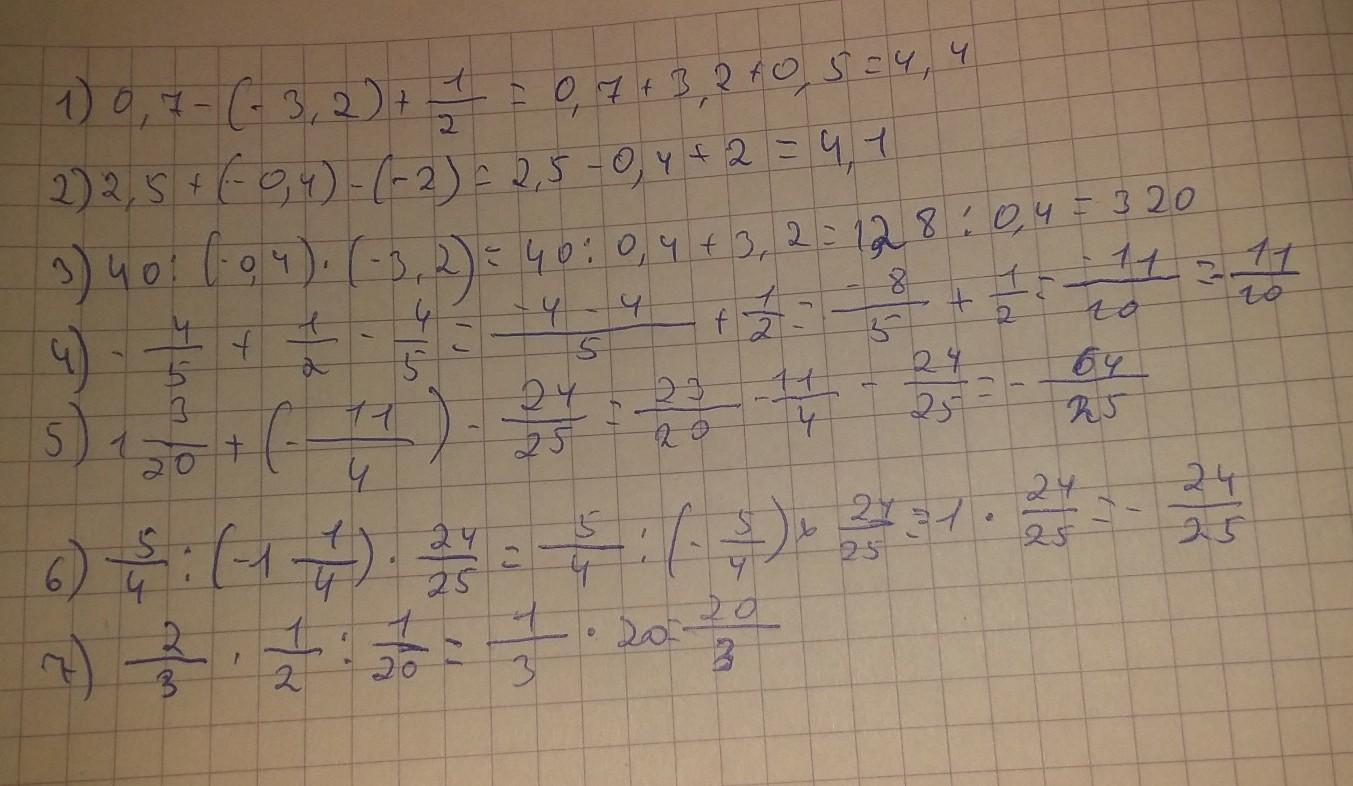 1) 0,7 - (-3,2) + 1/2 = 0,7 + 3,2 + 0,5 = 4,4
2) 2,5 + (-0,4) - (-2) = 2,5 - 0,4 + 2 = 4,1
3) 40 : (-0,4) · (-3,2) = 40 : 0,4 + 3,2 = 128 : 0,4 = 320
4) - 4/5 + 1/2 - 4/5 = (-4-4)/5 + 1/2 = -8/5 + 1/2 = -11/10 = -11/10
5) 1 3/20 + (-11/4) - 24/25 = 23/20 - 11/4 - 24/25 = - 64/25
6) 5/4 : (-1 1/4) · 24/25 = 5/4 : (-5/4) × 24/25 = 1 · 24/25 = - 24/25
7) 2/3 · 1/2 : 1/20 = 1/3 · 20 = 20/3